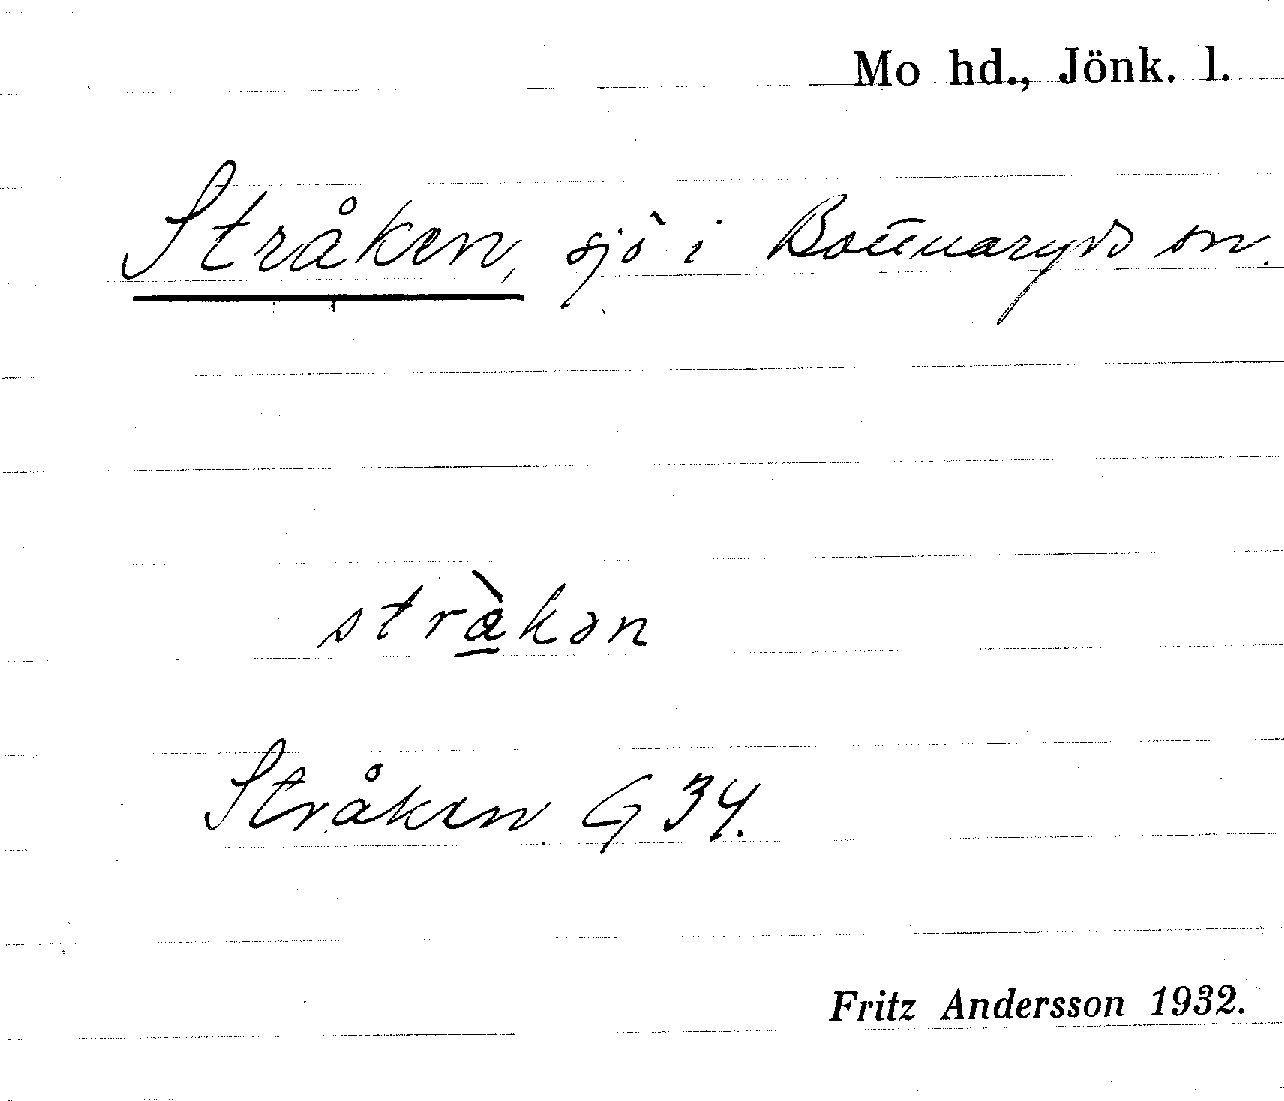 Mo hd., Jönk. l.
Stråken, sjö i Bottnaryds sn.
stràkən
Stråken G 34.
Fritz Andersson 1932.